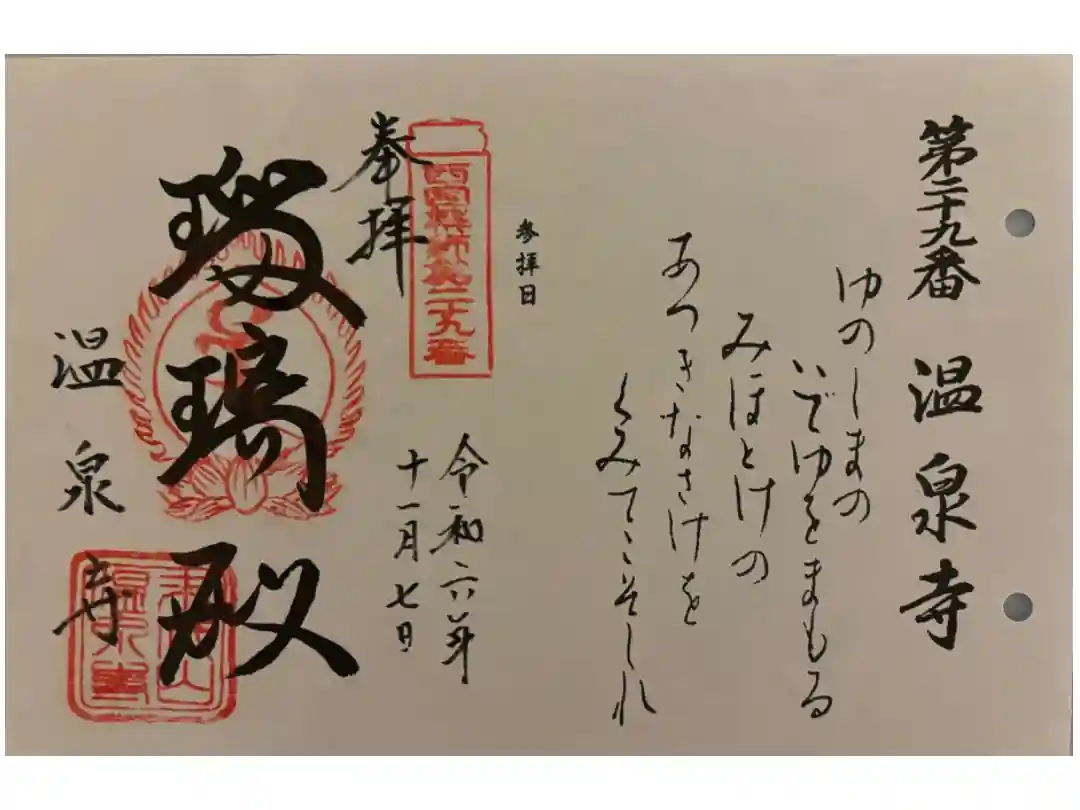 第二十九番 温泉寺
ゆのしまの
いでゆをまもる
みほとけの
あつきなさけを
くみてこそしれ
参拝日
西国薬師第二十九番
奉拝
令和六年
十一月七日
瑠璃殿
温泉寺